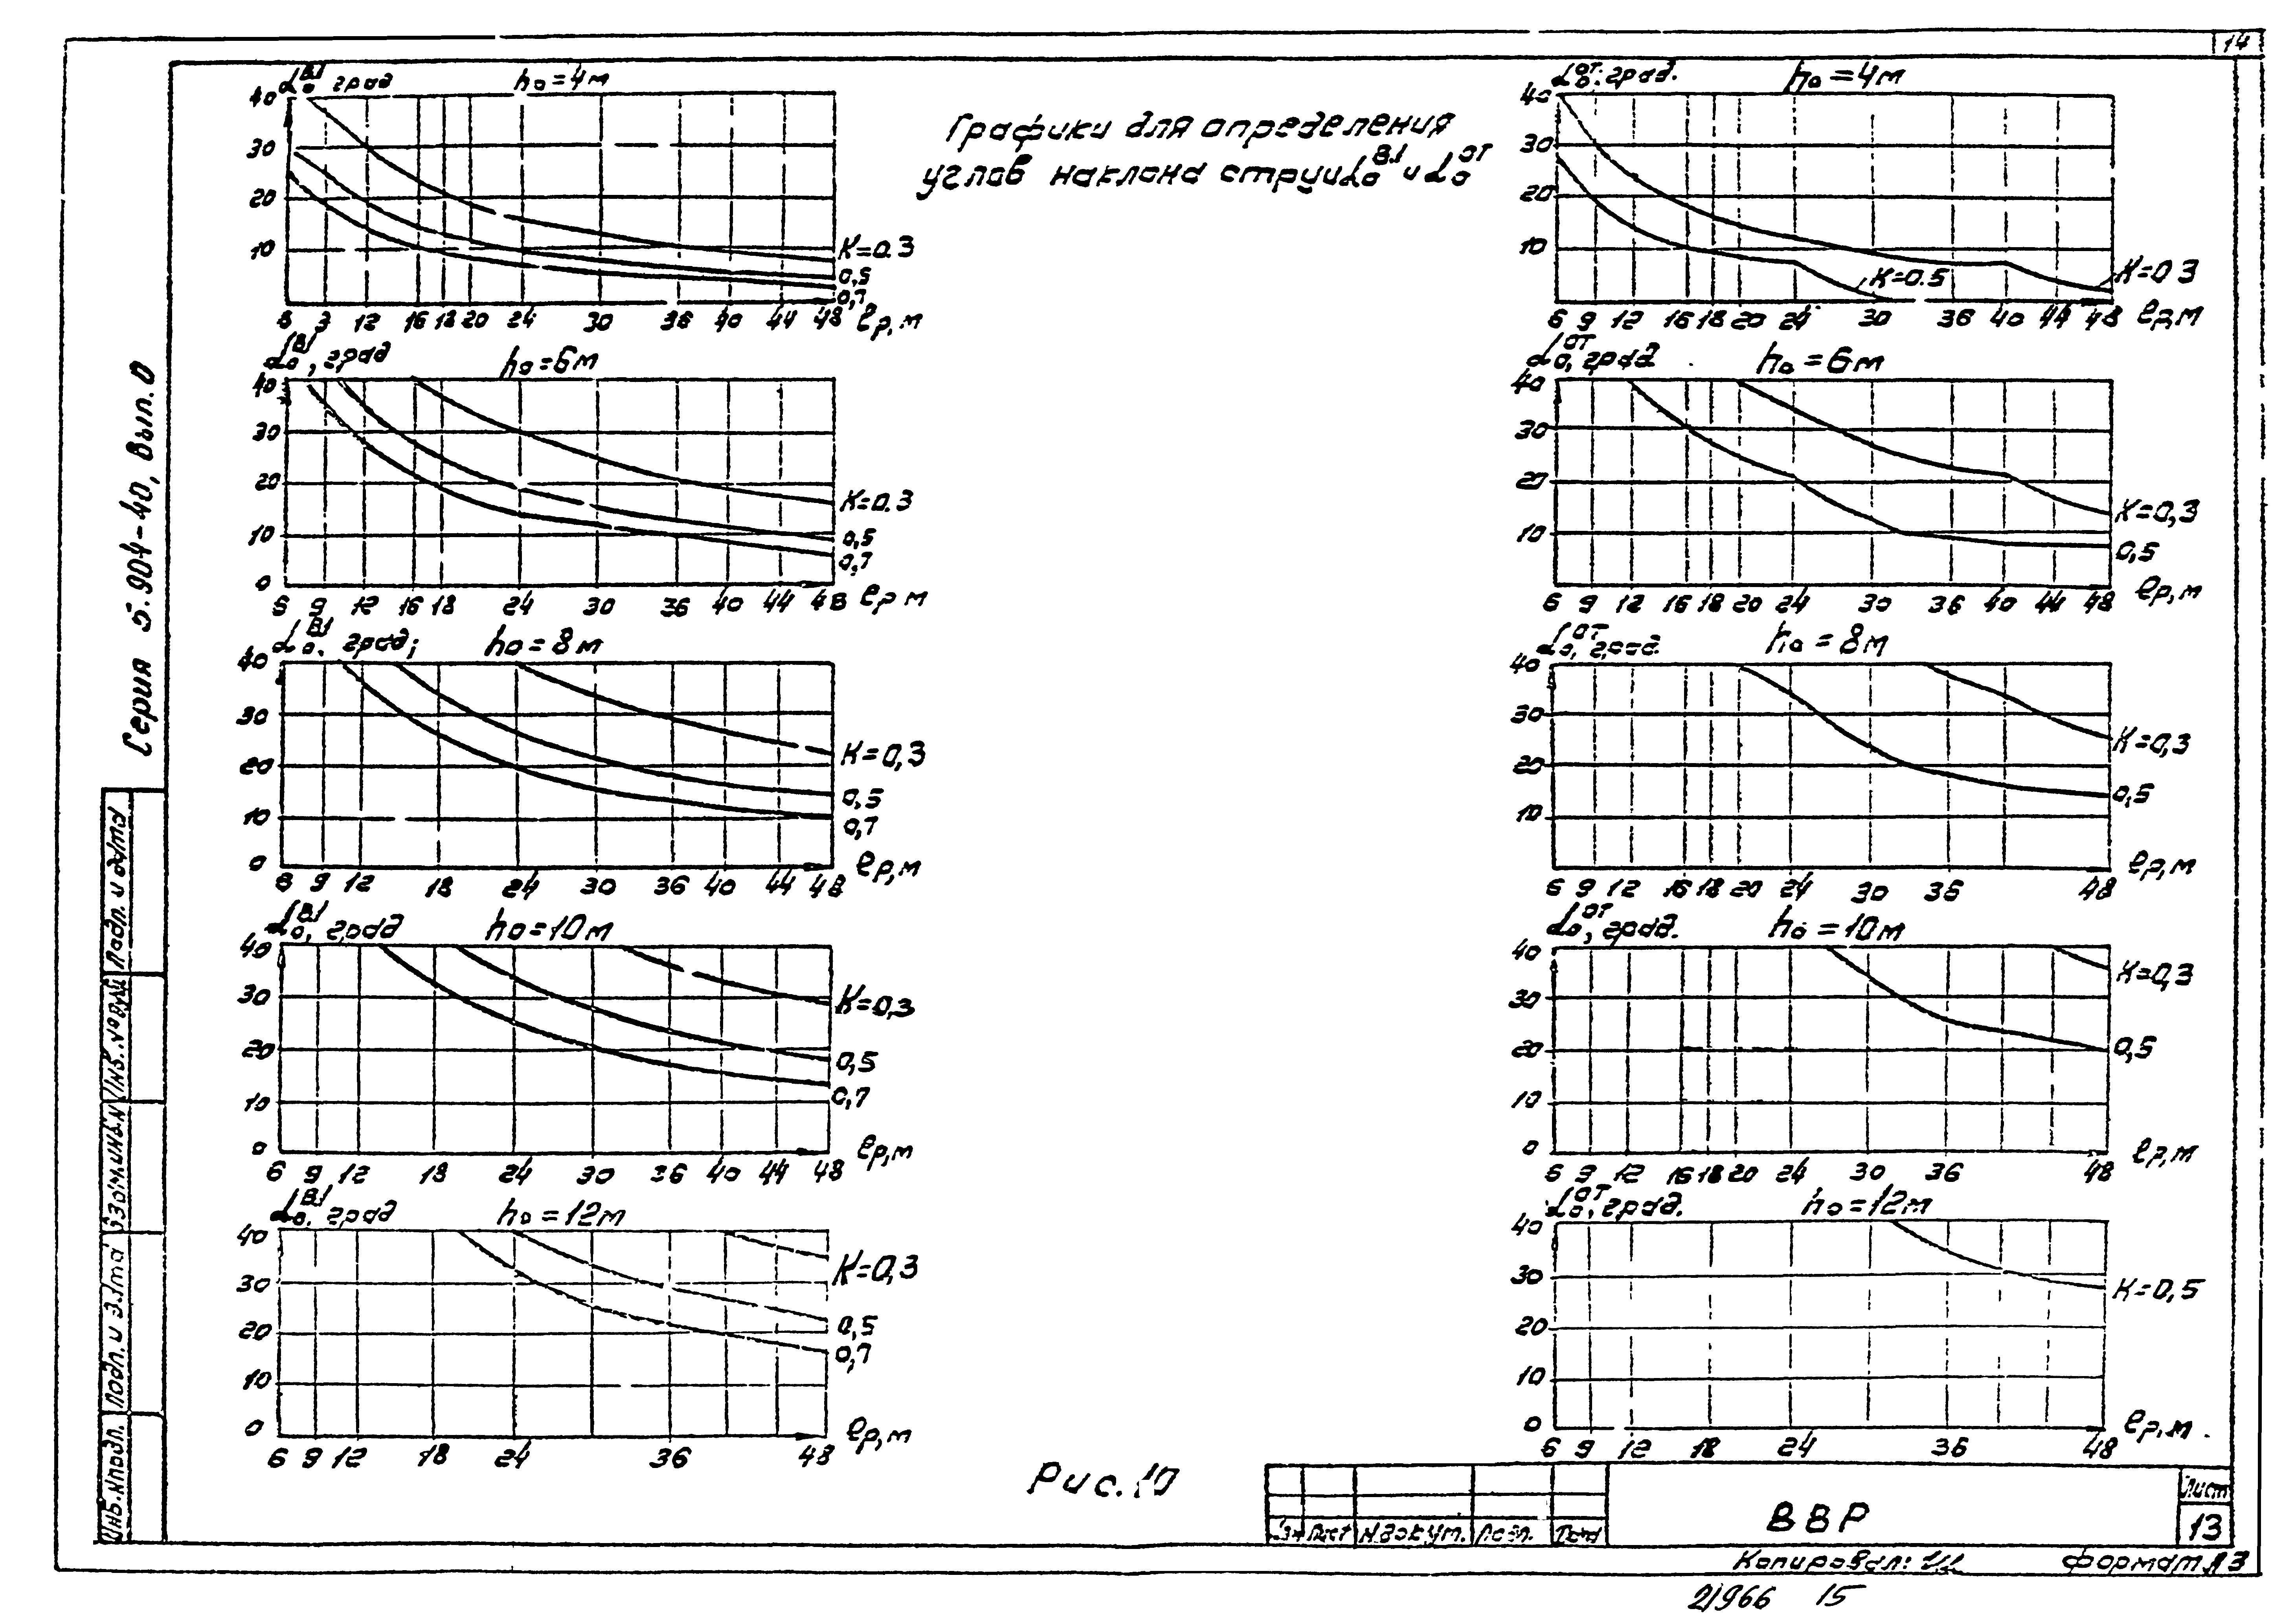 14
Графики для определения
углов наклона струи α₀ᴮᴸ и α₀ᴼᵀ
Серия 5.904-40, Вып. 0
α₀ᴮᴸ град h₀=4м
40
30
20
10
K=0.3
0,5
0,7
6 9 12 16 18 20 24 30 36 40 44 48 ℓр,м
α₀ᴮᴸ, град h₀=6м
40
30
20
10
0
K=0.3
0,5
0,7
6 9 12 16 18 24 30 36 40 44 48 ℓр,м
α₀ᴮᴸ, град; h₀=8м
40
30
20
10
0
K=0,3
0,5
0,7
6 9 12 18 24 30 36 40 44 48 ℓр,м
α₀ᴮᴸ, град h₀=10м
40
30
20
10
0
K=0,3
0,5
0,7
6 9 12 18 24 30 36 40 44 48 ℓр,м
α₀ᴮᴸ, град h₀=12м
40
30
20
10
0
K=0,3
0,5
0,7
6 9 12 18 24 36 48 ℓр,м
α₀ᴼᵀ град. h₀=4м
40
30
20
10
K=0.5
K=0.3
6 9 12 16 18 20 24 30 36 40 44 48 ℓр,м
α₀ᴼᵀ, град. h₀=6м
40
30
20
10
K=0,3
0,5
6 9 12 16 18 20 24 30 36 40 44 48 ℓр,м
α₀ᴼᵀ, град. h₀=8м
40
30
20
10
K=0,3
0,5
6 9 12 16 18 20 24 30 36 48 ℓр,м
α₀ᴼᵀ, град. h₀=10м
40
30
20
10
0
K=0,3
0,5
6 9 12 16 18 20 24 30 36 48 ℓр,м
α₀ᴼᵀ, град. h₀=12м
40
30
20
10
0
K=0,5
6 9 12 18 24 36 48 ℓр,м.
Рис. 10
Инв.Nподл. Подп. и дата Взам.инв.N Подп. и дата
Лист N докум. Подп. Дата
ВВР
Лист
13
Копировал:
формат А3
21966 15